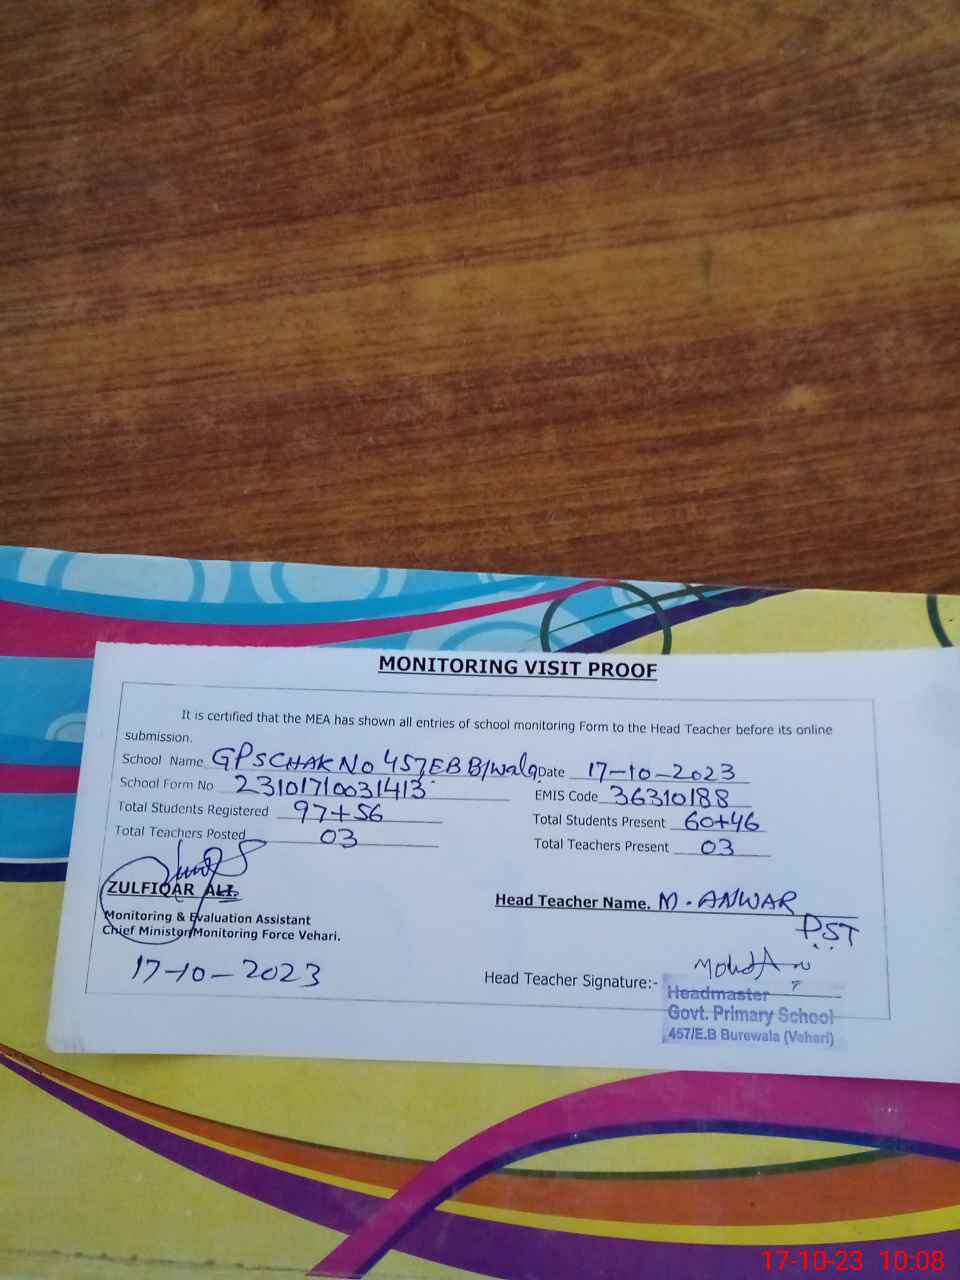 MONITORING VISIT PROOF
It is certified that the MEA has shown all entries of school monitoring Form to the Head Teacher before its online
submission.
School Name GPS CHAK No 457EB B/wala Date 17-10-2023
School Form No 23101710031413 EMIS Code 36310188
Total Students Registered 97+56 Total Students Present 60+46
Total Teachers Posted 03 Total Teachers Present 03
ZULFIQAR ALI.
Head Teacher Name. M. ANWAR
PST
Monitoring & Evaluation Assistant
Chief Minister Monitoring Force Vehari.
17-10-2023
Head Teacher Signature:-
Headmaster
Govt. Primary School
457/E.B Burewala (Vehari)
17-10-23 10:08